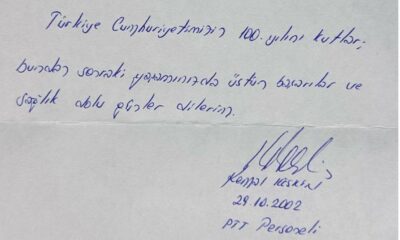 Türkiye Cumhuriyetimizin 100. yılını kutlar,
bundan sonraki yaşamınızda üstün başarılar ve
sağlık dolu günler dilerim.
Kemal KESKİN
29.10.2002
PTT Personeli